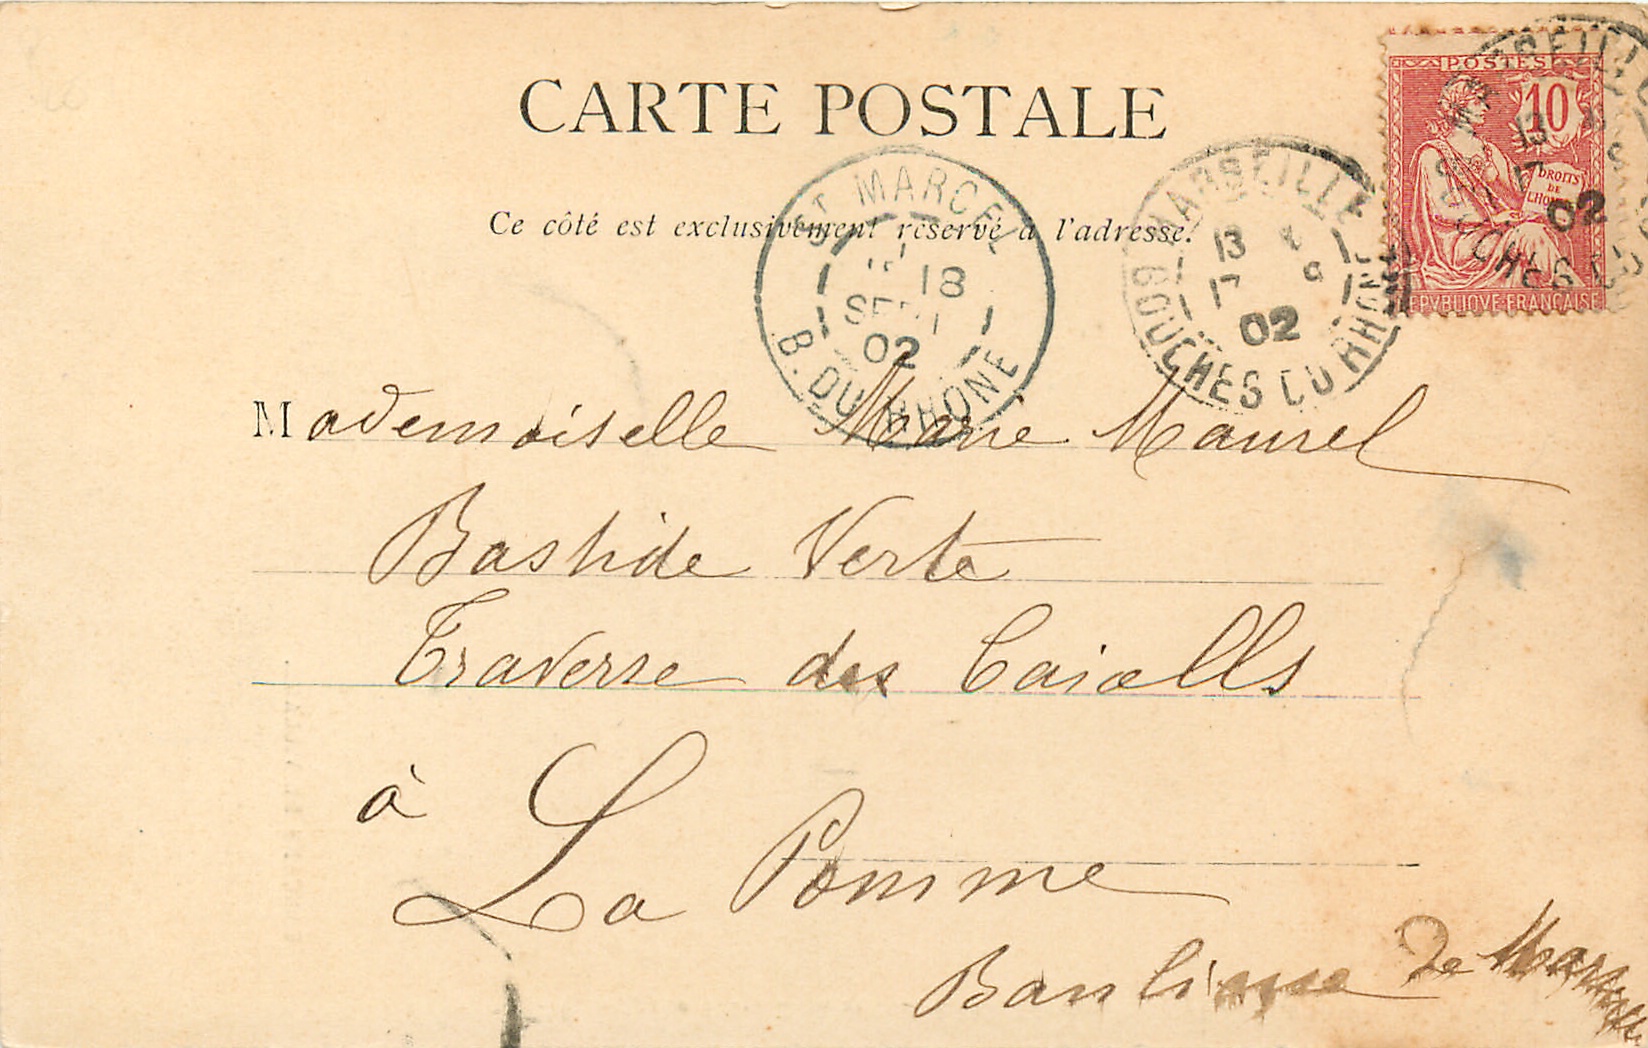 CARTE POSTALE
Ce côté est exclusivement réservé à l'adresse.
POSTES
10
DROITS
DE
L'HOMME
REPVBLIQVE FRANÇAISE
MARSEILLE
13
02
BOUCHES DU RHONE
MARSEILLE
13
02
BOUCHES DU RHONE
ST MARCEL
18
SEPT
02
B. DU RHONE
Mademoiselle Marie Maurel
Bastide Verte
Traverse des Caiolls
à La Pomme
Banlieue de